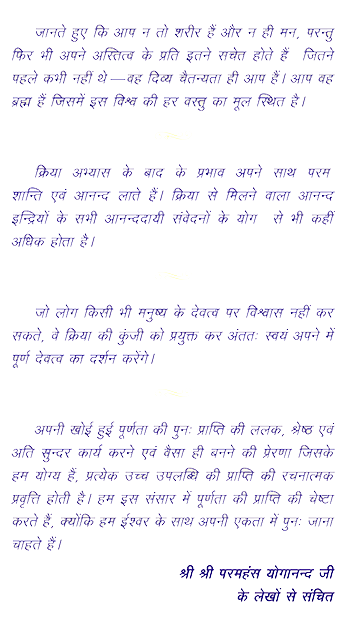 जानते हुए कि आप न तो शरीर हैं और न ही मन, परन्तु
फिर भी अपने अस्तित्व के प्रति इतने सचेत होते हैं जितने
पहले कभी नहीं थे—वह दिव्य चैतन्यता ही आप हैं। आप वह
ब्रह्म हैं जिसमें इस विश्व की हर वस्तु का मूल स्थित है।
क्रिया अभ्यास के बाद के प्रभाव अपने साथ परम
शान्ति एवं आनन्द लाते हैं। क्रिया से मिलने वाला आनन्द
इन्द्रियों के सभी आनन्ददायी संवेदनों के योग से भी कहीं
अधिक होता है।
जो लोग किसी भी मनुष्य के देवत्व पर विश्वास नहीं कर
सकते, वे क्रिया की कुंजी को प्रयुक्त कर अंततः स्वयं अपने में
पूर्ण देवत्व का दर्शन करेंगे।
अपनी खोई हुई पूर्णता की पुनः प्राप्ति की ललक, श्रेष्ठ एवं
अति सुन्दर कार्य करने एवं वैसा ही बनने की प्रेरणा जिसके
हम योग्य हैं, प्रत्येक उच्च उपलब्धि की प्राप्ति की रचनात्मक
प्रवृत्ति होती है। हम इस संसार में पूर्णता की प्राप्ति की चेष्टा
करते हैं, क्योंकि हम ईश्वर के साथ अपनी एकता में पुनः जाना
चाहते हैं।
श्री श्री परमहंस योगानन्द जी
के लेखों से संचित